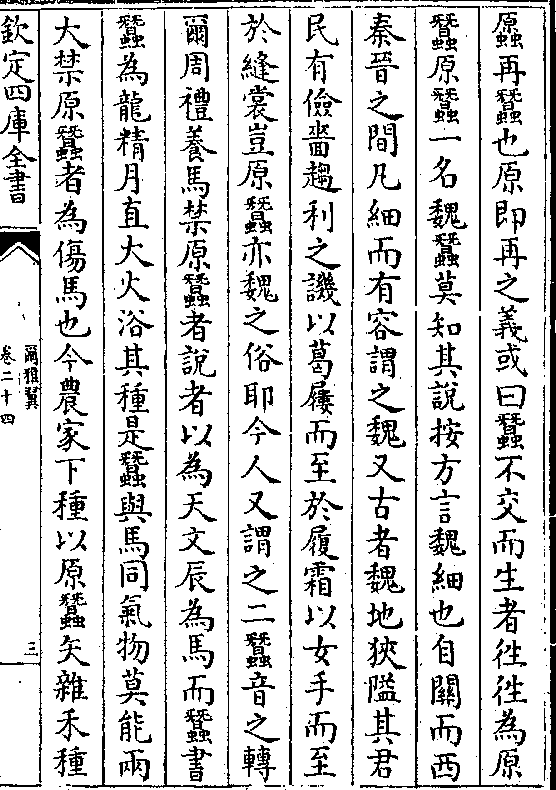 䖵再蠶也原即再之義或曰蠶不交而生者徃徃為原
蠶原蠶一名魏蠶莫知其說按方言魏細也自關而西
秦晉之間凡細而有容謂之魏又古者魏地狹隘其君
民有儉嗇趨利之譏以葛屨而至於履霜以女手而至
於縫裳豈原蠶亦魏之俗耶今人又謂之二蠶音之轉
爾周禮養馬禁原蠶者說者以為天文辰為馬而蠶書
蠶為龍精月直大火浴其種是蠶與馬同氣物莫能兩
大禁原蠶者為傷馬也今農家下種以原蠶矢雜禾種
欽定四庫全書
爾雅翼
卷二十四
三